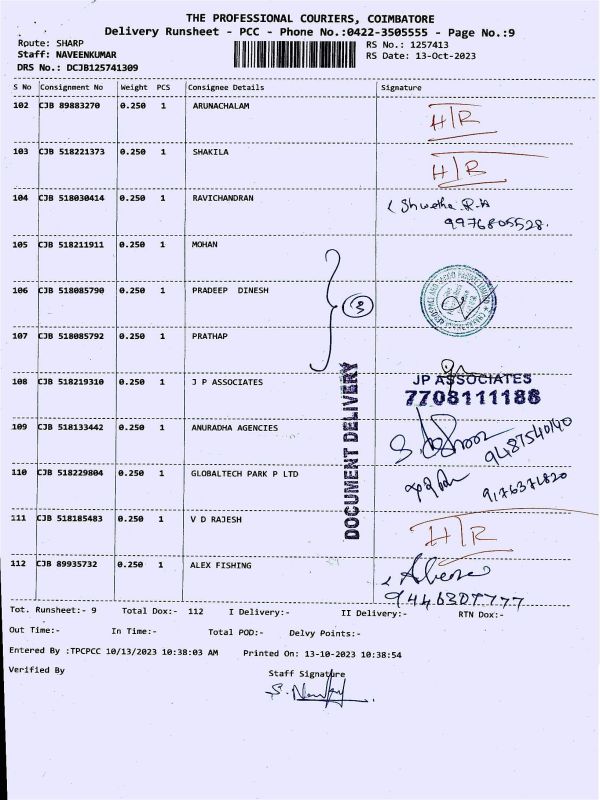 THE PROFESSIONAL COURIERS, COIMBATORE
Delivery Runsheet - PCC - Phone No.:0422-3505555 - Page No.:9
Route: SHARP RS No.: 1257413
Staff: NAVEENKUMAR RS Date: 13-Oct-2023
DRS No.: DCJB125741309
S No Consignment No Weight PCS Consignee Details Signature
102 CJB 89883270 0.250 1 ARUNACHALAM H/R
103 CJB 518221373 0.250 1 SHAKILA H/R
104 CJB 518030414 0.250 1 RAVICHANDRAN Shwetha.R.A
9976805528.
105 CJB 518211911 0.250 1 MOHAN
106 CJB 518085790 0.250 1 PRADEEP DINESH
3
107 CJB 518085792 0.250 1 PRATHAP
108 CJB 518219310 0.250 1 J P ASSOCIATES JP ASSOCIATES
7708111188
DOCUMENT DELIVERY
109 CJB 518133442 0.250 1 ANURADHA AGENCIES
9487540140
110 CJB 518229804 0.250 1 GLOBALTECH PARK P LTD
9176371820
111 CJB 518185483 0.250 1 V D RAJESH H/R
112 CJB 89935732 0.250 1 ALEX FISHING
9446307777
Tot. Runsheet:- 9 Total Dox:- 112 I Delivery:- II Delivery:- RTN Dox:-
Out Time:- In Time:- Total POD:- Delvy Points:-
Entered By :TPCPCC 10/13/2023 10:38:03 AM Printed On: 13-10-2023 10:38:54
Verified By Staff Signature